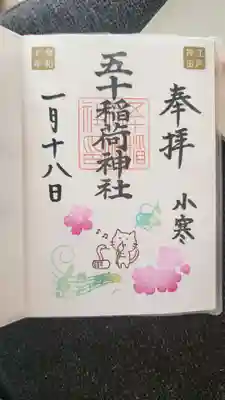 奉拝
小寒
五十稲荷神社
一月十八日